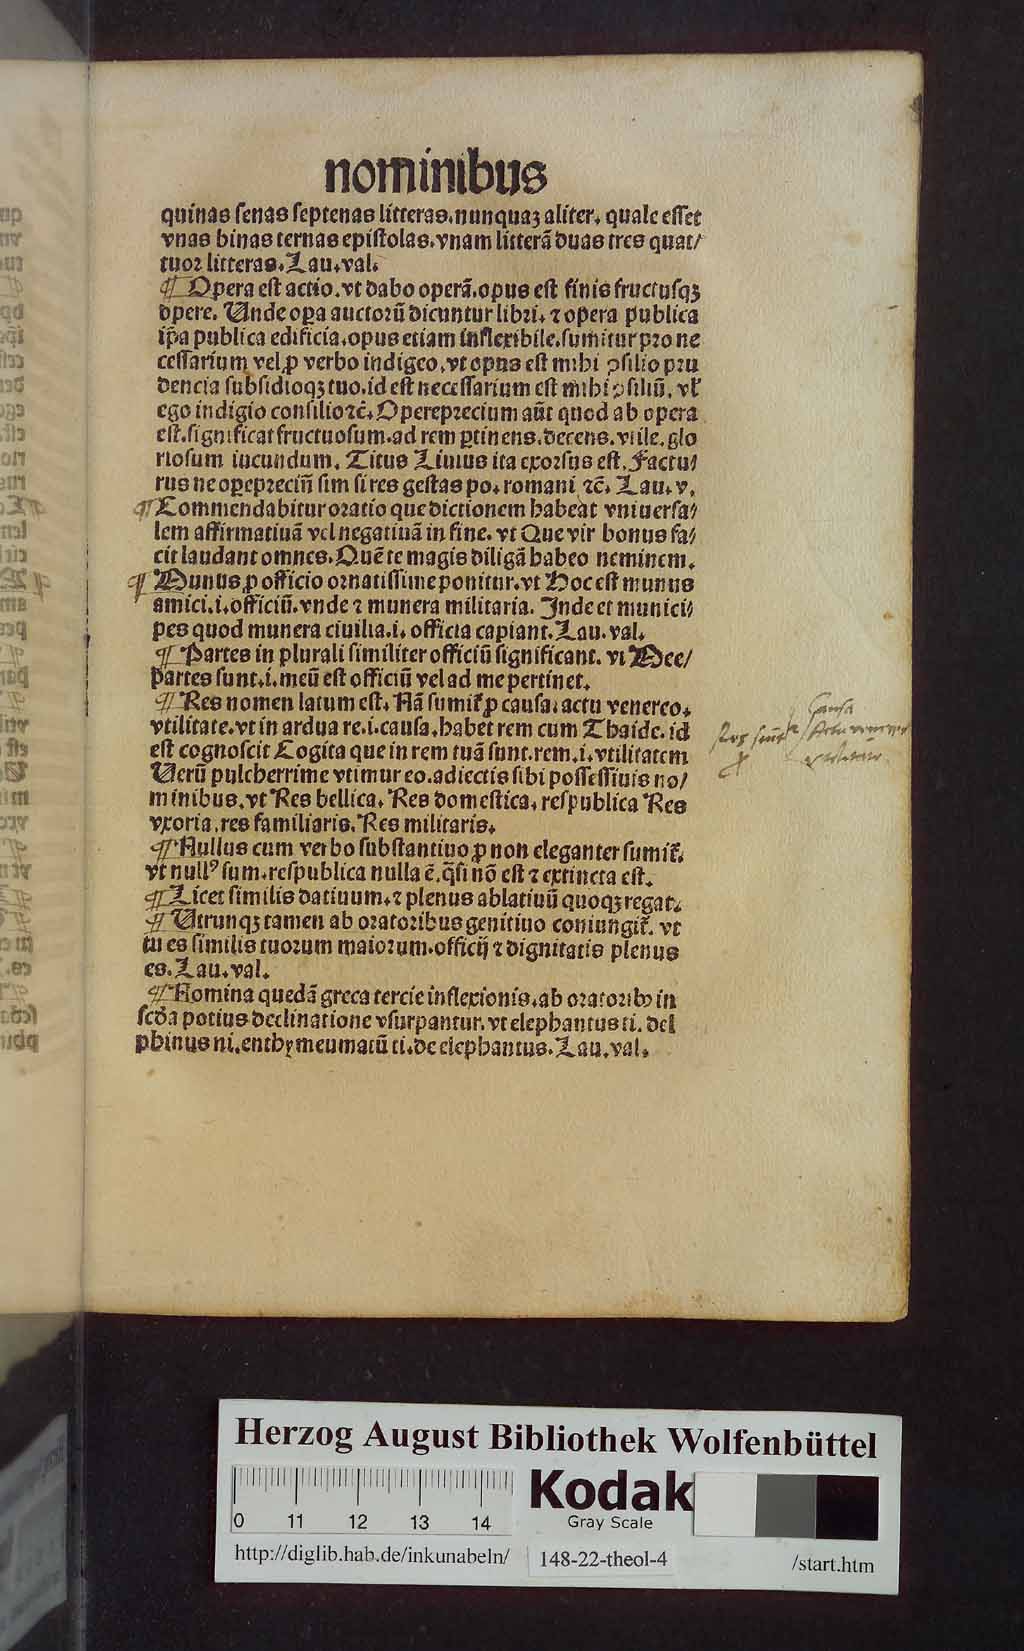 nominibus
quinas senas septenas litteras. nunquaꝫ aliter. quale esset
vnas binas ternas epistolas. vnam litterā duas tres quat/
tuor litteras. Lau. val.
¶ Opera est actio. vt dabo operā. opus est finis fructusqꝫ
opere. Unde oꝑa auctorū dicuntur libri. ⁊ opera publica
ip̄a publica edificia. opus etiam inflexibile. sumitur pro ne
cessarium vel ꝓ verbo indigeo. vt opus est mihi ꝯsilio pru
dencia subsidioqꝫ tuo. id est necessarium est mihi ꝯsiliū. vl̛
ego indigio consilio ⁊c̄. Opereprecium aūt quod ab opera
est. significat fructuosum. ad rem ꝑtinens. decens. vtile. glo
riosum iucundum. Titus Liuius ita exorsus est. Factu/
rus ne oꝑepreciū sim si res gestas po. romani ⁊c̄. Lau. v.
¶ Commendabitur oratio que dictionem habeat vniuersa/
lem affirmatiuā vel negatiuā in fine. vt Que vir bonus fa/
cit laudant omnes. Quē te magis diligā habeo neminem.
¶ Munus ꝓ officio ornatissime ponitur. vt Hoc est munus
amici. i. officiū. vnde ⁊ munera militaria. Inde et munici/
pes quod munera ciuilia. i. officia capiant. Lau. val.
¶ Partes in plurali similiter officiū significant. vt Mee/
partes sunt. i. meū est officiū vel ad me pertinet.
¶ Res nomen latum est. Nā sumit̛ ꝓ causa: actu venereo.
vtilitate. vt in ardua re. i. causa. habet rem cum Thaide. id
est cognoscit Cogita que in rem tuā sunt. rem. i. vtilitatem
Uerū pulcherrime vtimur eo. adiectis sibi possessiuis no/
minibus. vt Res bellica. Res domestica. respublica Res
vxoria. res familiaris. Res militaris.
¶ Nullus cum verbo substantiuo ꝓ non eleganter sumit̛.
vt nullꝰ sum. respublica nulla ē. q̄si nō est ⁊ extincta est.
¶ Licet similis datiuum. ⁊ plenus ablatiuū quoqꝫ regat.
¶ Utrunqꝫ tamen ab oratoribus genitiuo coniungit̛. vt
tu es similis tuorum maiorum. officij ⁊ dignitatis plenus
es. Lau. val.
¶ Nomina quedā greca tercie inflexionis. ab oratoribꝫ in
scd̄a potius declinatione vsurpantur. vt elephantus ti. del
phinus ni. enthymeumatū ti. de elephantus. Lau. val.
causa
Herzog August Bibliothek Wolfenbüttel
0 11 12 13 14
Kodak
Gray Scale
http://diglib.hab.de/inkunabeln/ 148-22-theol-4 /start.htm